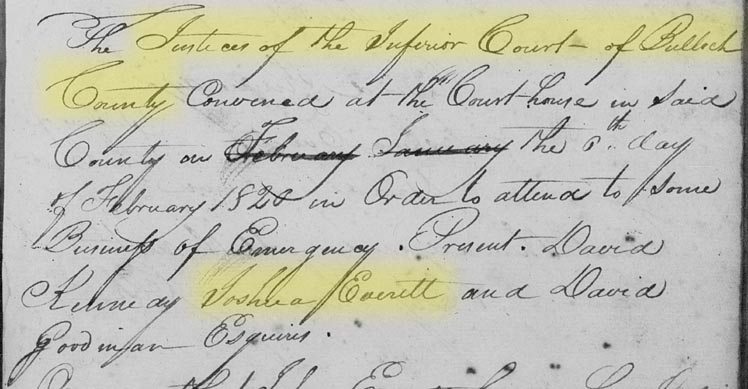 The Justices of the Inferior Court - of Bulloch
County Convened at the Court house in Said
County on February January the 6th day
of February 1820 in Order to attend to Some
Business of Emergency. Present. David
Kennedy Joshua Everett and David
Goodman Esquires.